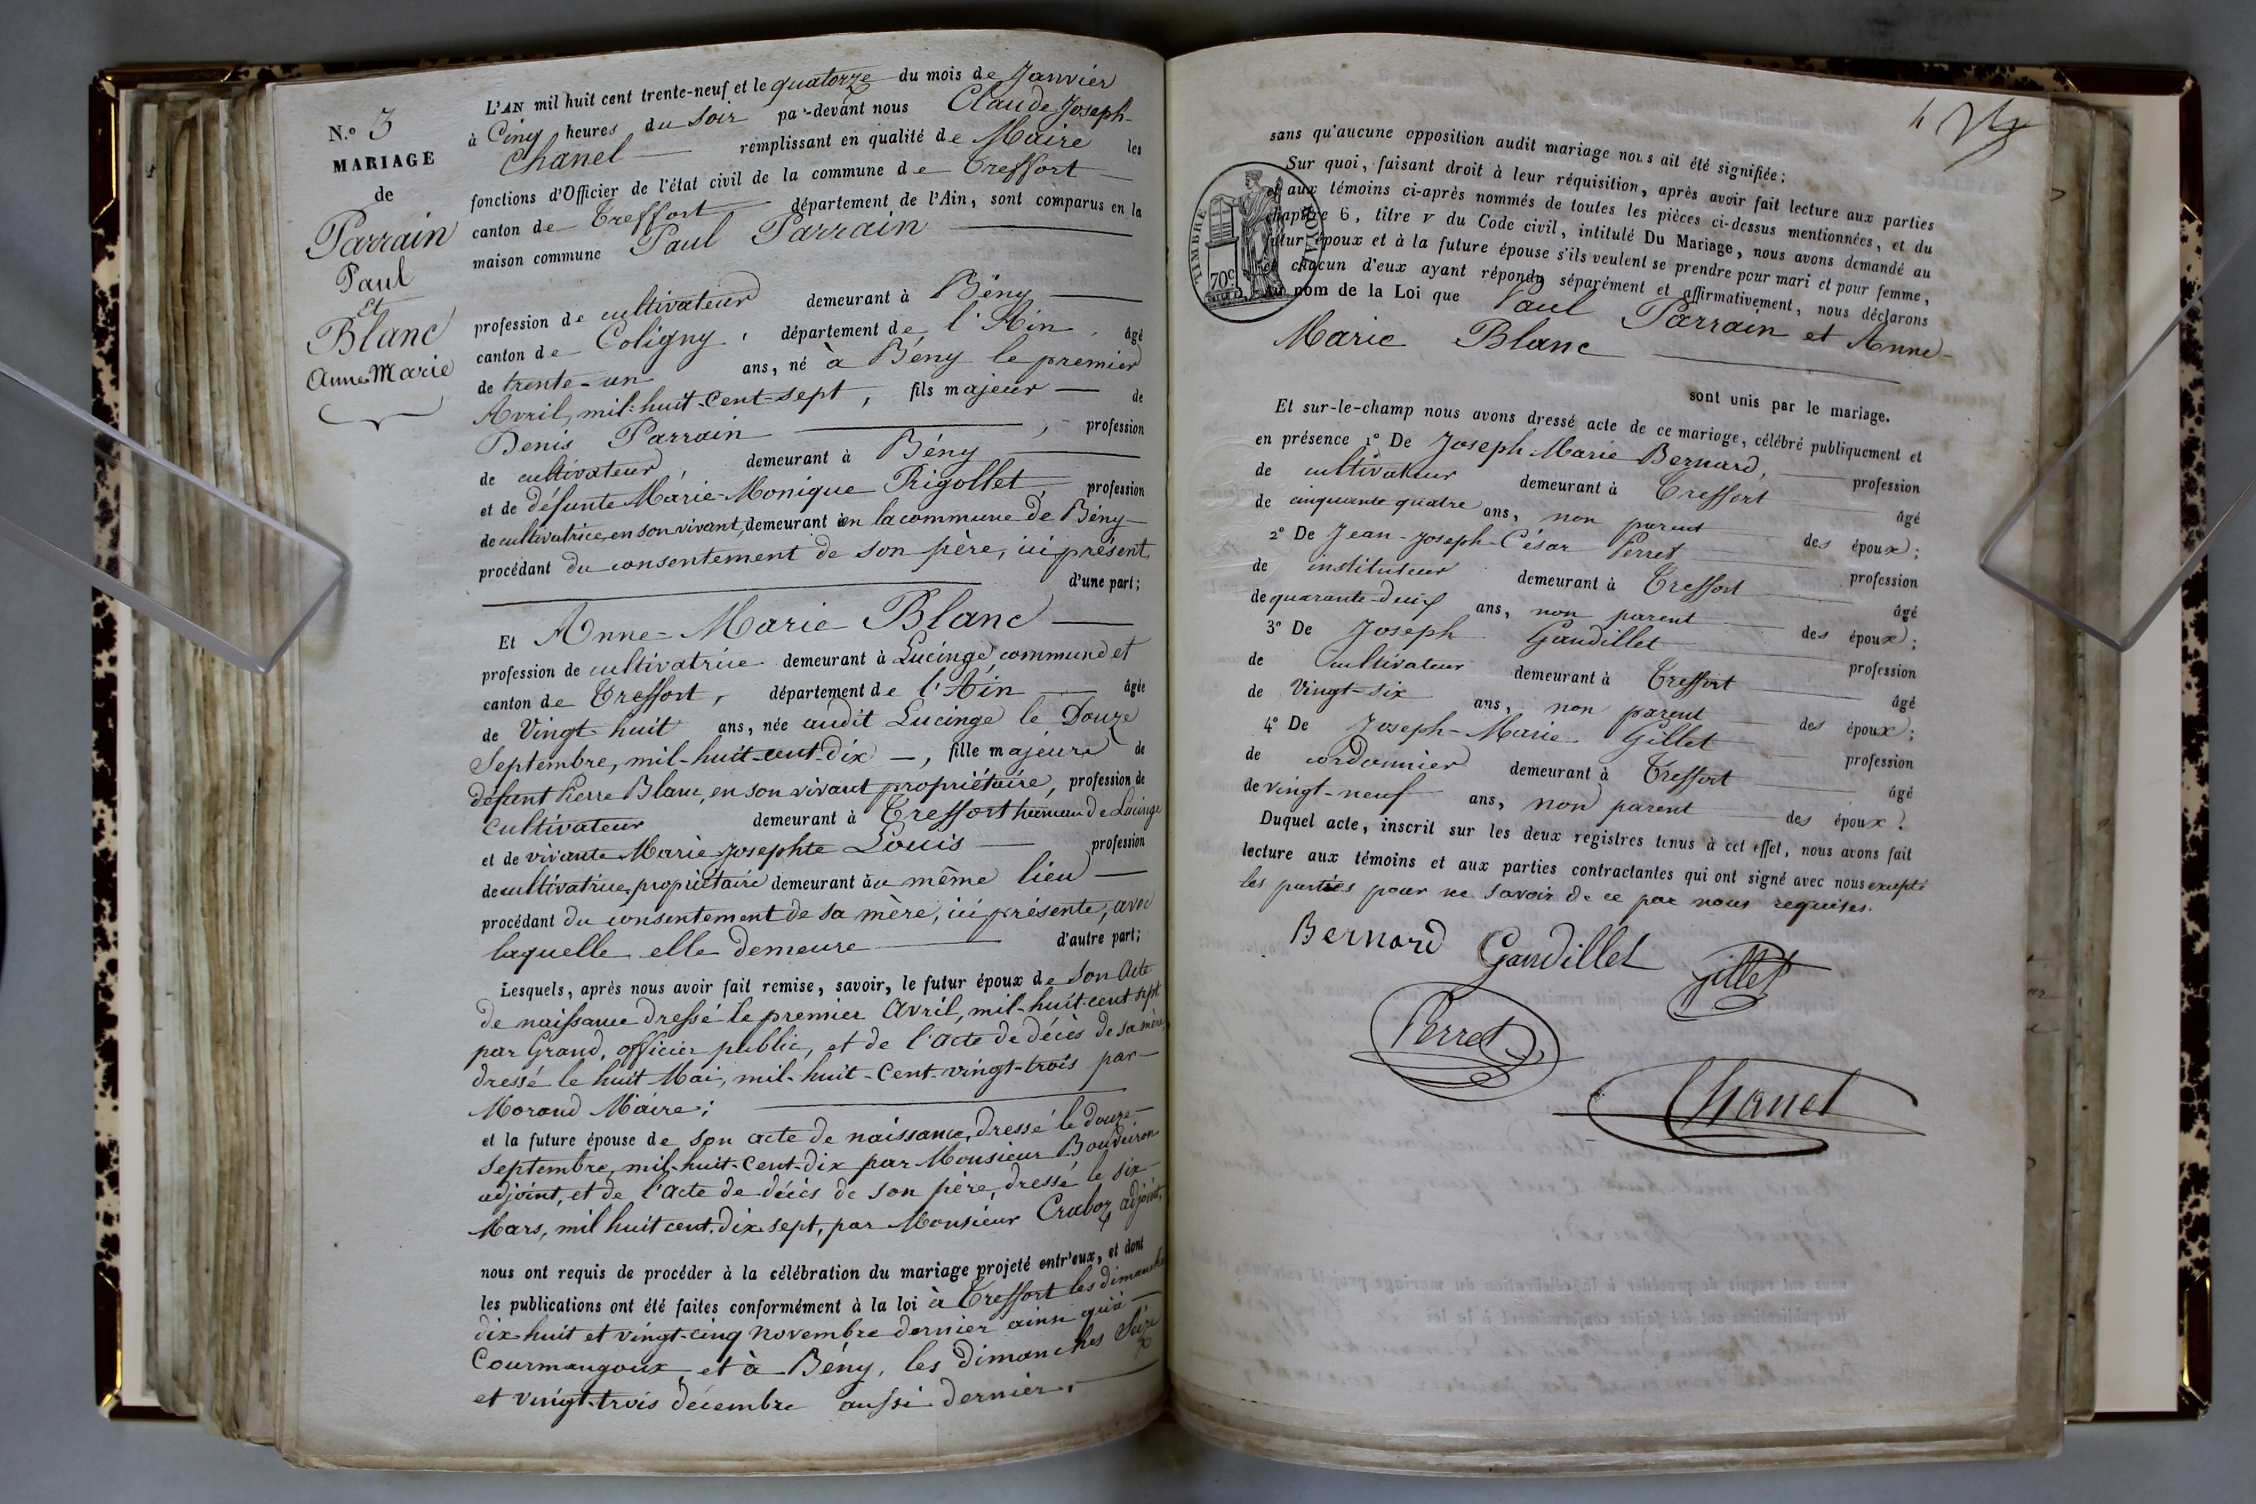 N.° 3
MARIAGE
de
Parrain
Paul
Et
Blanc
Anne Marie
L'AN mil huit cent trente-neuf et le quatorze du mois de Janvier
à Cinq heures du Soir par-devant nous Claude Joseph-
Chanel remplissant en qualité de Maire les
fonctions d'Officier de l'état civil de la commune de Treffort
canton de Treffort département de l'Ain, sont comparus en la
maison commune Paul Parrain
profession de cultivateur demeurant à Bény
canton de Coligny, département de l'Ain, âgé
de trente-un ans, né à Bény le premier
Avril, mil-huit-cent-sept, fils majeur de
Denis Parrain, profession
de cultivateur, demeurant à Bény
et de défunte Marie-Monique Rigollet, profession
de cultivatrice, en son vivant, demeurant en la commune de Bény
procédant du consentement de son père, ici présent
d'une part;
Et Anne-Marie Blanc
profession de cultivatrice demeurant à Lucinge, commune et
canton de Treffort, département de l'Ain âgée
de Vingt-huit ans, née audit Lucinge le Douze
Septembre, mil-huit-cent-dix, fille majeure de
défunt Pierre Blanc, en son vivant propriétaire, profession de
cultivateur demeurant à Treffort hameau de Lucinge
et de vivante Marie-Josephte Louis profession
de cultivatrice, propriétaire demeurant au même lieu
procédant du consentement de sa mère, ici présente, avec
laquelle elle demeure d'autre part;
Lesquels, après nous avoir fait remise, savoir, le futur époux de son Acte
de naissance dressé le premier Avril, mil-huit cent sept
par Grand, officier public, et de l'acte de décès de sa mère,
dressé le huit Mai, mil-huit-cent-vingt-trois par
Morand Maire;
et la future épouse de son acte de naissance, dressé le douze
Septembre, mil-huit-cent-dix par Monsieur Bouveiron
adjoint, et de l'acte de décès de son père, dressé le six
Mars, mil huit cent dix sept, par Monsieur Craboz adjoint,
nous ont requis de procéder à la célébration du mariage projeté entr'eux, et dont
les publications ont été faites conformément à la loi à Treffort les dimanches
dix huit et vingt-cinq novembre dernier ainsi qu'à
Courmangoux, et à Bény, les dimanches Seize
et vingt-trois décembre aussi dernier,
4
sans qu'aucune opposition audit mariage nous ait été signifiée;
Sur quoi, faisant droit à leur réquisition, après avoir fait lecture aux parties
et aux témoins ci-après nommés de toutes les pièces ci-dessus mentionnées, et du
chapitre 6, titre v du Code civil, intitulé Du Mariage, nous avons demandé au
futur époux et à la future épouse s'ils veulent se prendre pour mari et pour femme,
et chacun d'eux ayant répondu séparément et affirmativement, nous déclarons
au nom de la Loi que Paul Parrain et Anne-
Marie Blanc
sont unis par le mariage.
TIMBRE ROYAL
70c
Et sur-le-champ nous avons dressé acte de ce mariage, célébré publiquement et
en présence 1° De Joseph Marie Bernard, profession
de cultivateur demeurant à Treffort âgé
de cinquante quatre ans, non parent des époux;
2° De Jean-Joseph-César Perret profession
de instituteur demeurant à Treffort âgé
de quarante-deux ans, non parent des époux;
3° De Joseph Gaudillet profession
de Cultivateur demeurant à Treffort âgé
de Vingt-six ans, non parent des époux;
4° De Joseph-Marie Gillet profession
de cordonnier demeurant à Treffort âgé
de vingt-neuf ans, non parent des époux.
Duquel acte, inscrit sur les deux registres tenus à cet effet, nous avons fait
lecture aux témoins et aux parties contractantes qui ont signé avec nous excepté
les parties pour ne savoir de ce par nous requises.
Bernard Gaudillet Gillet
Perret
Chanel